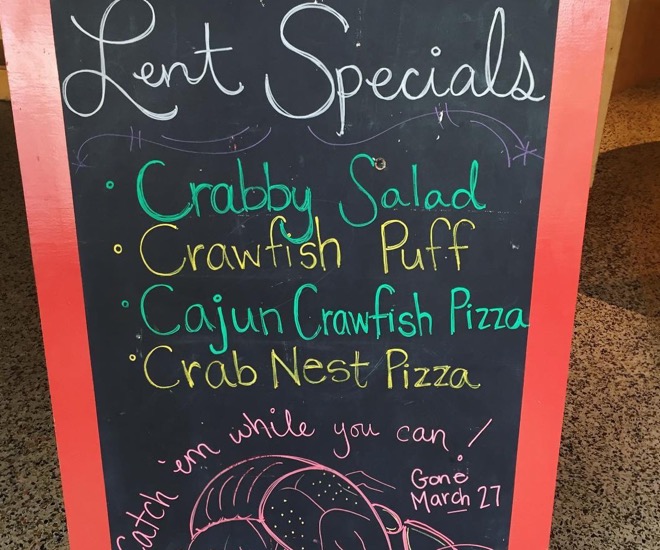 Lent Specials
Crabby Salad
Crawfish Puff
Cajun Crawfish Pizza
Crab Nest Pizza
Catch 'em while you can!
Gone
March 27